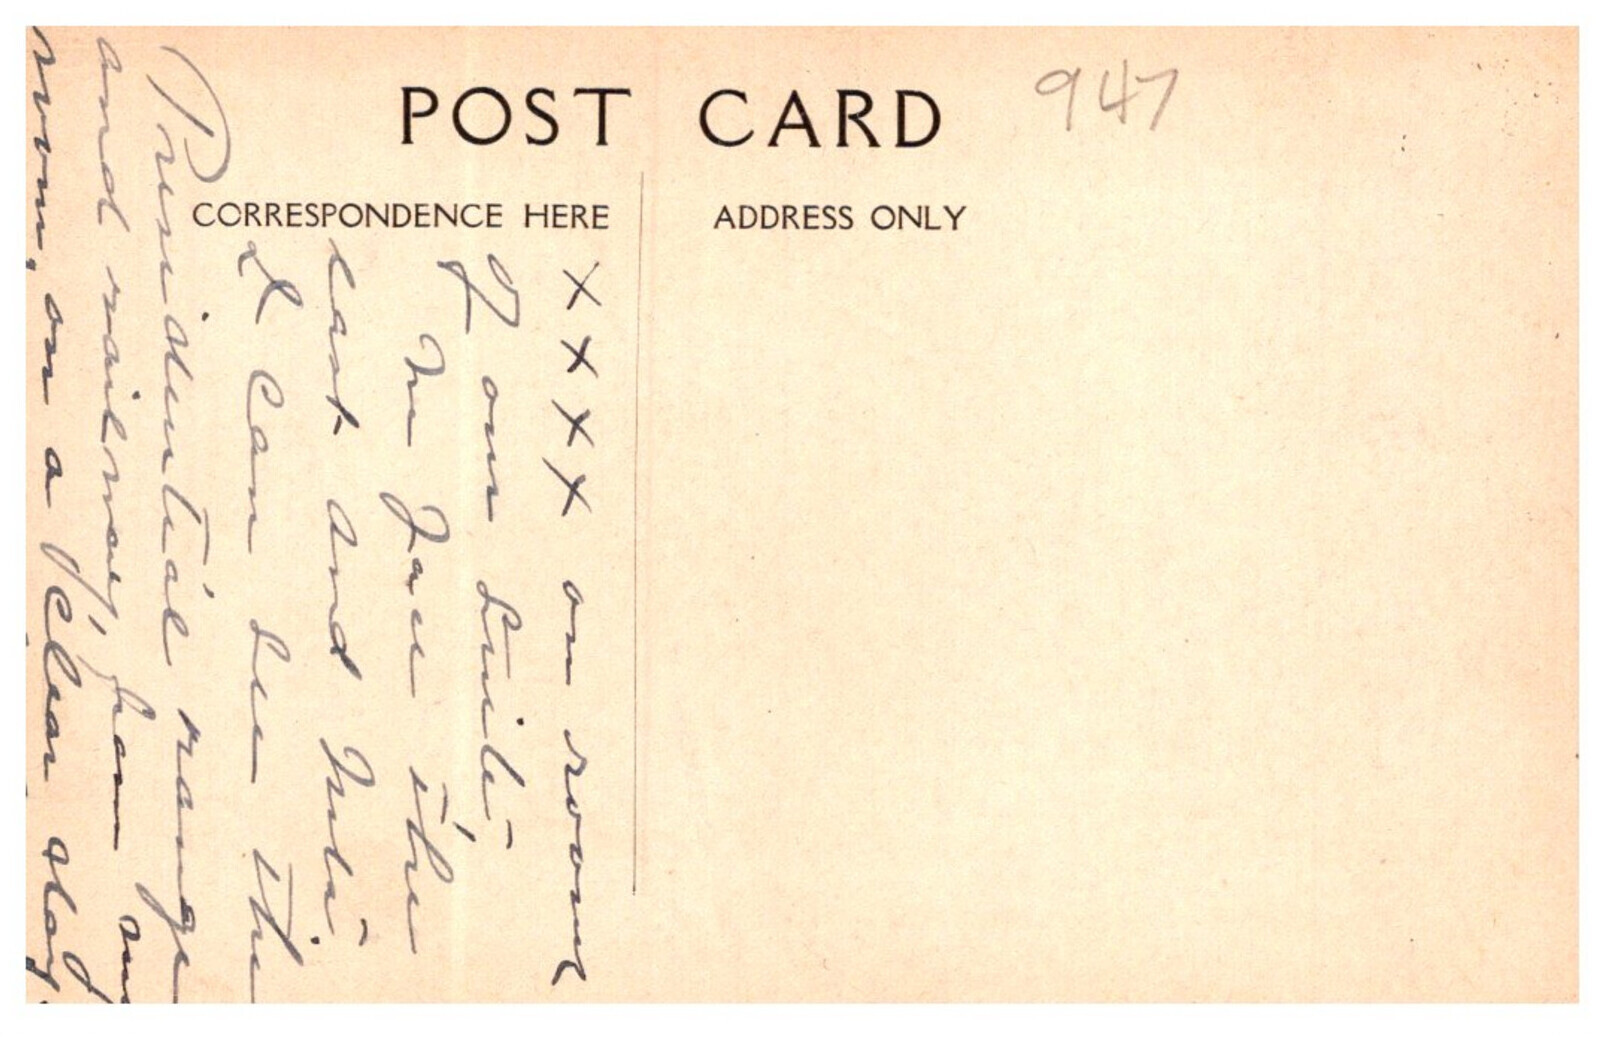 POST CARD
947
CORRESPONDENCE HERE
ADDRESS ONLY
X X X X on rooms
of our suite.
We face the
east and West.
I can see the
Presidential range
and railway, from my
room, on a clear day.